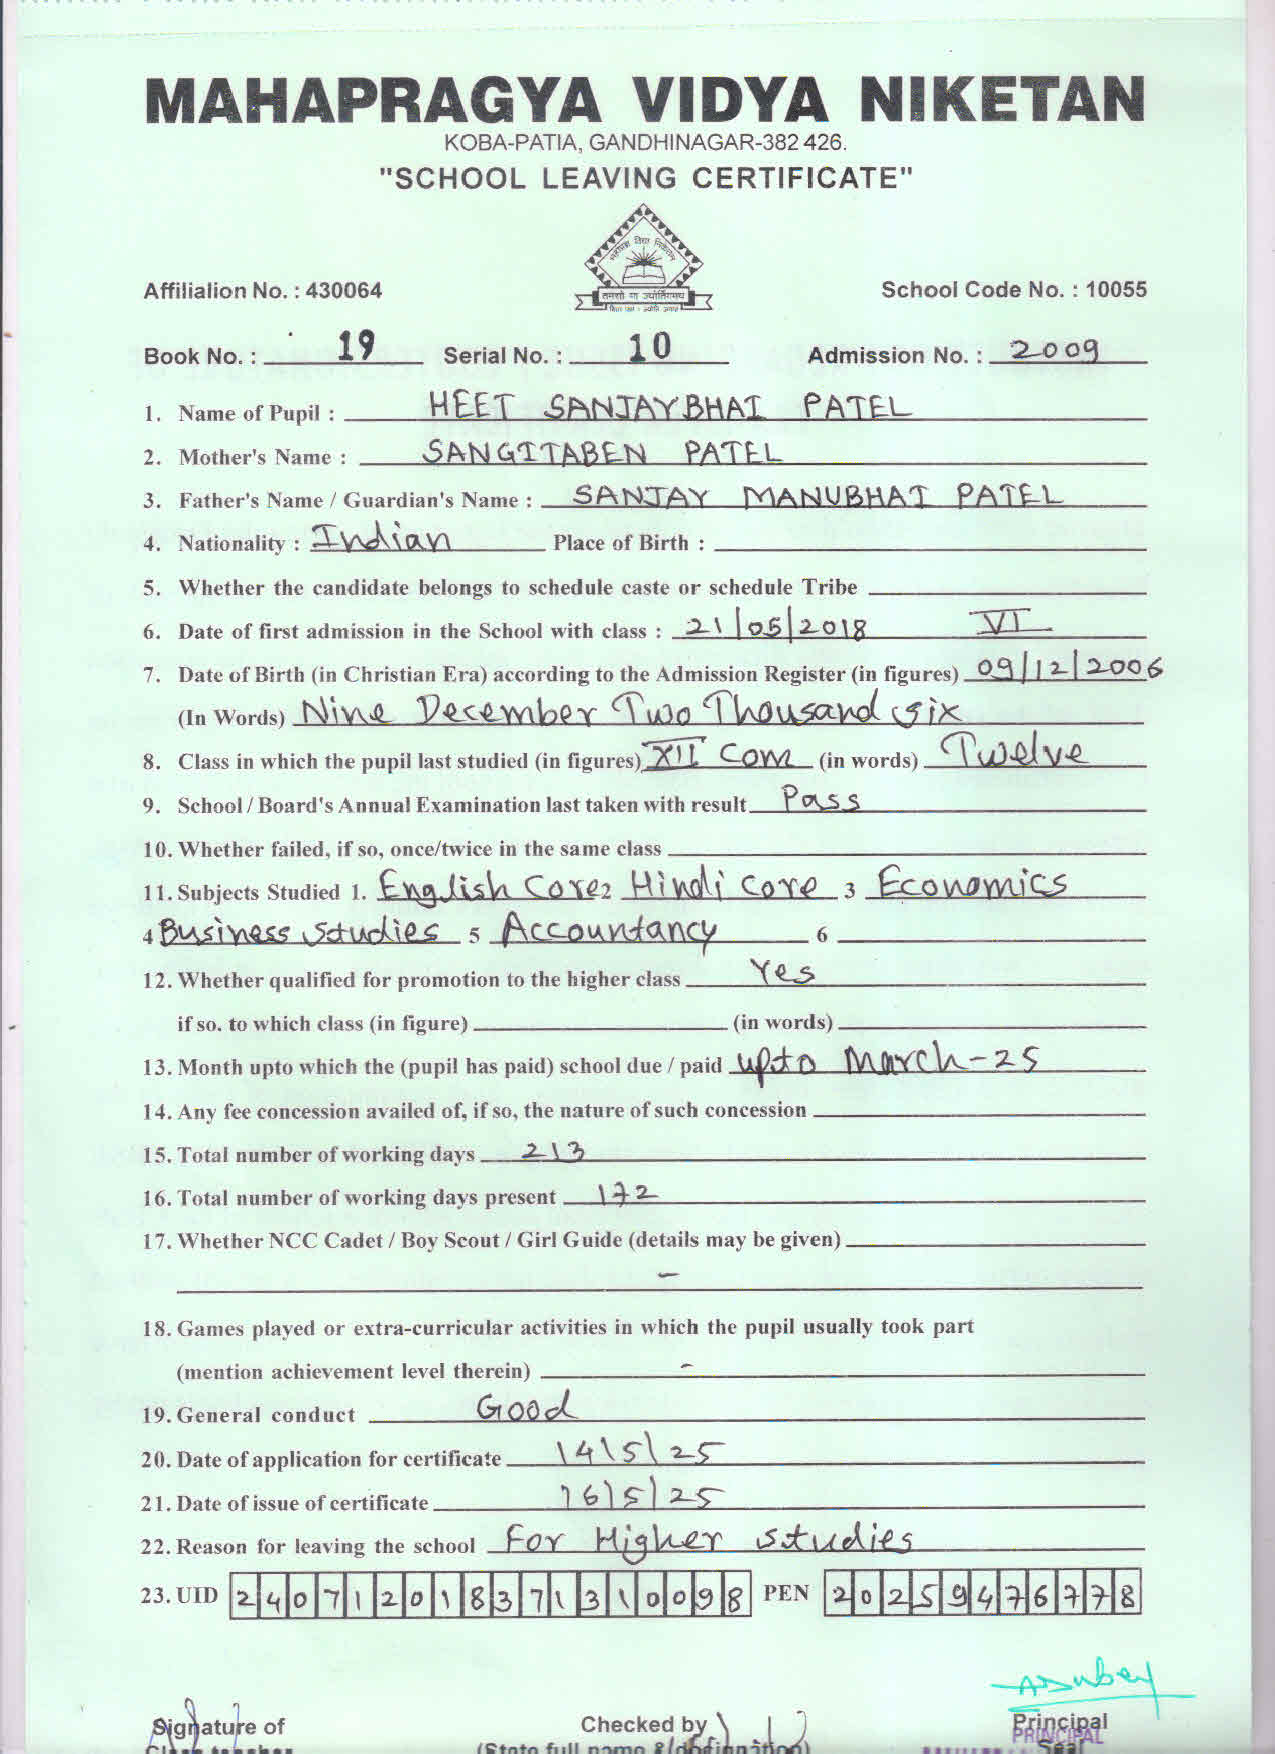 MAHAPRAGYA VIDYA NIKETAN
KOBA-PATIA, GANDHINAGAR-382 426.
"SCHOOL LEAVING CERTIFICATE"
महाप्रज्ञ विद्या निकेतन
तमसो मा ज्योतिर्गमय
Affilialion No. : 430064 School Code No. : 10055
Book No. : 19 Serial No. : 10 Admission No. : 2009
1. Name of Pupil : HEET SANJAYBHAI PATEL
2. Mother's Name : SANGITABEN PATEL
3. Father's Name / Guardian's Name : SANJAY MANUBHAI PATEL
4. Nationality : Indian Place of Birth :
5. Whether the candidate belongs to schedule caste or schedule Tribe
6. Date of first admission in the School with class : 21/05/2018 VI
7. Date of Birth (in Christian Era) according to the Admission Register (in figures) 09/12/2006
(In Words) Nine December Two Thousand six
8. Class in which the pupil last studied (in figures) XII Com (in words) Twelve
9. School / Board's Annual Examination last taken with result Pass
10. Whether failed, if so, once/twice in the same class
11. Subjects Studied 1. English Core 2 Hindi Core 3 Economics
4 Business studies 5 Accountancy 6
12. Whether qualified for promotion to the higher class Yes
if so. to which class (in figure) (in words)
13. Month upto which the (pupil has paid) school due / paid upto March-25
14. Any fee concession availed of, if so, the nature of such concession
15. Total number of working days 213
16. Total number of working days present 172
17. Whether NCC Cadet / Boy Scout / Girl Guide (details may be given)
-
18. Games played or extra-curricular activities in which the pupil usually took part
(mention achievement level therein) -
19. General conduct Good
20. Date of application for certificate 14/5/25
21. Date of issue of certificate 16/5/25
22. Reason for leaving the school For Higher studies
23. UID 240712018371310098 PEN 20259476778
ADubey
Signature of Checked by Principal
Class teacher (State full name & designation) PRINCIPAL
Seal